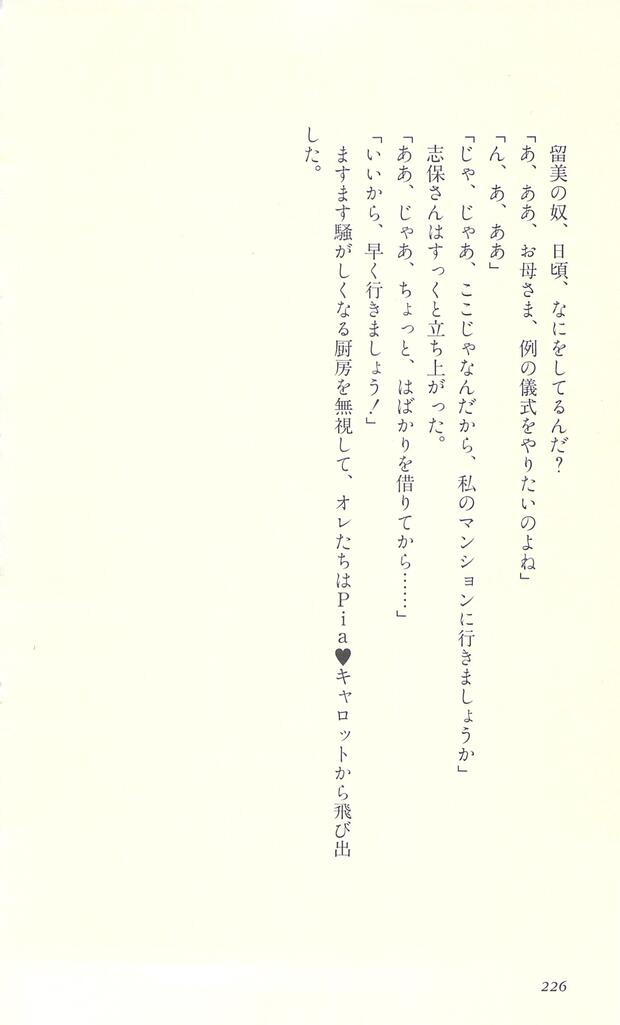 留美の奴、日頃、なにをしてるんだ？
「あ、ああ、お母さま、例の儀式をやりたいのよね」
「ん、あ、ああ」
「じゃ、じゃあ、ここじゃなんだから、私のマンションに行きましょうか」
志保さんはすっくと立ち上がった。
「ああ、じゃあ、ちょっと、はばかりを借りてから……」
「いいから、早く行きましょう！」
ますます騒がしくなる厨房を無視して、オレたちはＰｉａ♥キャロットから飛び出
した。
226